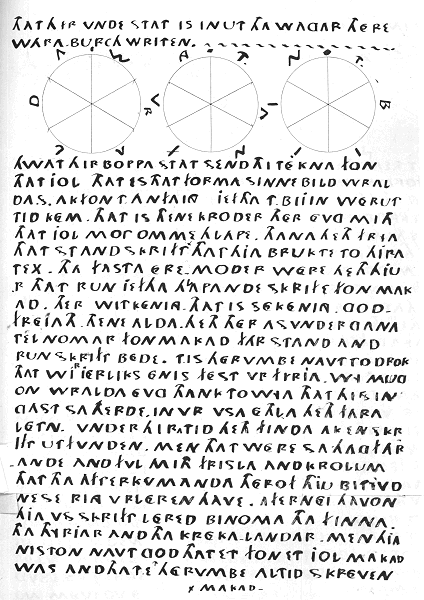 THAT HIR VNDE STAT IS IN UT THA WAGAR THERE
WARA.BURCH WRITEN.
A W A T. N T.
D R B
L A I I
HWAT HIR BOPPA STAT SEND THI TEKNA FON
THAT JOL. THAT IS THAT FORMA SINNEBILD WRAL
DAS. AK FON T.ANFANG JEFTHA T.BIJIN WERUT
TID KEM. THAT IS THENE KRODER THER EVG MITH
THAT JOL MOT OMMEHLAPE. THANA HETH FRYA
THAT STANDSKRIFT THAT HJA BRUKTE TO HJRA
TEX. THA FASTA ERE.MODER WERE HETH HJU
.R THAT RUN JEFTHA HLAPANDE SKRIFT FON MAK
AD. THER WITKENING. THAT IS SEKENING. GOD.
FREIATH. THENE ALDA. HETH THER ASVNDERGANA
TELNOMAR FON MAKAD FAR STAND AND
RUNSKRIFT BEDE. T.IS THERVMBE NAVT TO DROK
THAT WI.R IERLIKS ENIS FEST VR FIRIA. WI MUG
ON WRALDA EVG THANK TO WIA THAT HI SIN
GAST SA HERDE. IN VR VSA ETHLA HETH FARA
LETN. VNDER HIRA TID HETH FINDA AK EN SKR
IFT UTFVNDEN. MEN THAT WERE SA HAGFAR
.ANDE AND FVL MITH FRISLA AND KROLUM
THAT THA AFTERKVMANDA THEROF THJU BITJVD
NESE RING VRLEREN HAVE. AFTERNEI HAVON
HJA VS SKRIFT LERED BINOMA THA FINNA.
THA THYRJAR AND THA KREKALANDAR. MEN HJA
NISTON NAVT GOD THAT ET FON ET JOL MAKAD
WAS AND THAT ET THERVMBE ALTID SKREVEN
MAKAD.